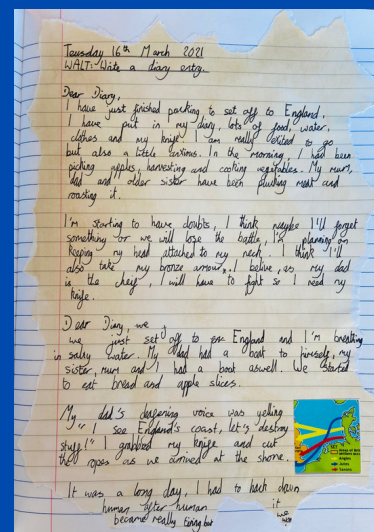 Teusday 16th March 2021
WALT: Write a diary entry.
Dear Diary,
I have just finished packing to set off to England.
I have put in my diary, lots of food, water,
clothes and my knife. I am really exited to go
but also a little In the morning, I had been
picking apples, harvesting and cooking vegetables. My mum,
dad and older sister have been plucking meat and
roasting it.
I'm starting to have doubts, I think maybe I'll forget
something or we will lose the battle, I'm planning on
keeping my head attached to my neck. I think I'll
also take my bronze armour, I belive, as my dad
is the cheif, I will have to fight so I need my
knife.
Dear Diary, we
we just set off to England and I'm breathing
in salty water. My dad had a boat to himself, my
sister, mum and I had a boat aswell. We started
to eat bread and apple slices.
My dad's deafening voice was yelling
"I see England's coast, let's destroy
stuff!" I grabbed my knife and cut
the ropes as we arrived at the shore.
It was a long day, I had to hack down
human after human it
became really tiring but we